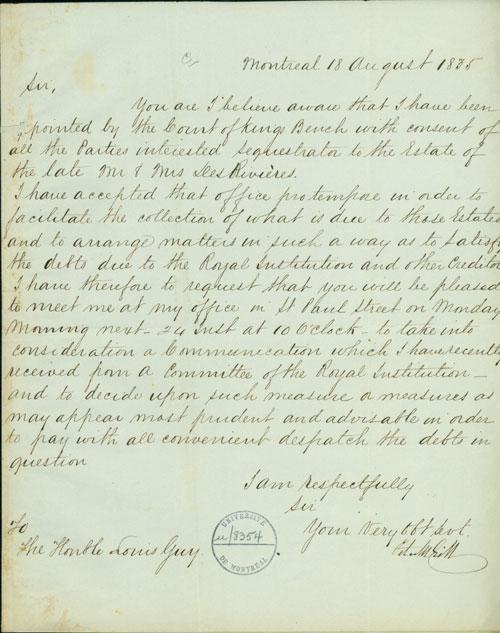 Montreal 18 August 1835
Sir,
You are I believe aware that I have been
pointed by the Court of Kings Bench with consent of
all the Parties interested Sequestrator to the Estate of
the late Mr & Mrs DesRivières.
I have accepted that office protempore in order to
facilitate the collection of what is due to those Estates
and to arrange matters in such a way as to Satisfy
the debts due to the Royal Institution and other Creditor
I have therefore to request that you will be pleased
to meet me at my office in St Paul Street on Monday
Morning next - 24 Inst at 10 O'Clock - to take into
consideration a Communication which I have recently
received from a Committee of the Royal Institution -
and to decide upon such measure or measures as
may appear most prudent and advisable in order
to pay with all convenient despatch the debts in
question
I am respectfully
Sir
Your Very Obt Svt.
To
The Honble Louis Guy.
UNIVERSITE
u/8354
DE MONTREAL